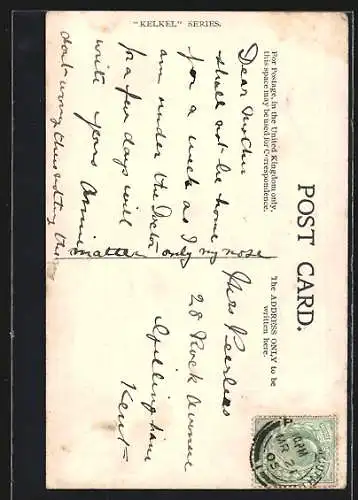 "KELKEL" SERIES.
For Postage, in the United Kingdom only,
this space may be used for Correspondence.
POST CARD.
The ADDRESS ONLY to be
written here.
Dear Mother
shall not be home
for a week as I
am under the Doctor only my nose
for a few days will
write yours Annie
don't worry this
matter
Mrs Peerless
28 Rock Avenue
Gillingham
Kent
PM
MR 2
05